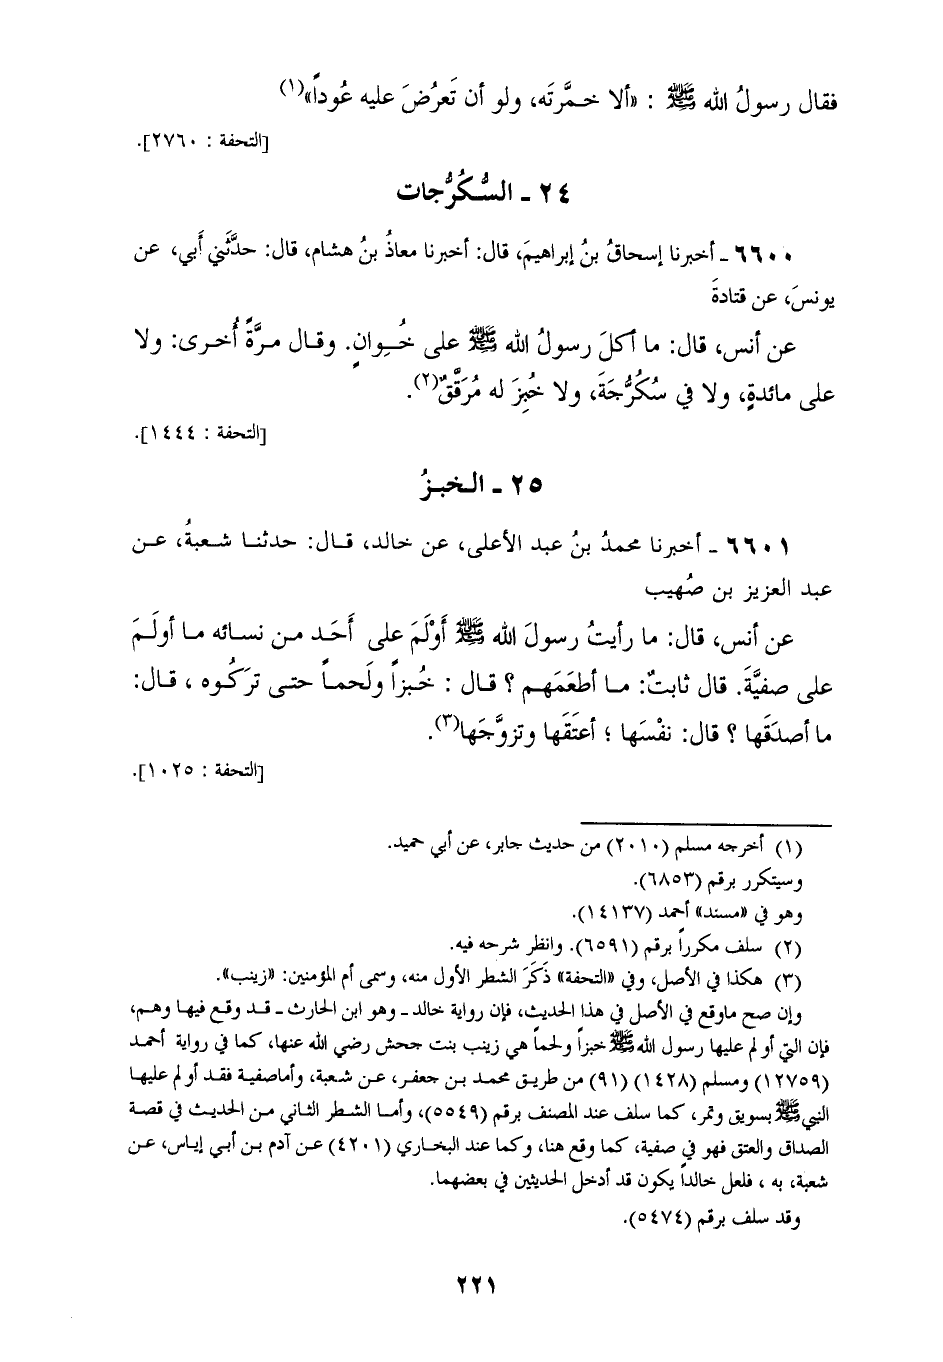 فقال رسولُ الله ﷺ : «ألا خمَّرتَه، ولو أن تَعرُضَ عليه عُوداً»(١)
[التحفة : ٢٧٦٠].
٢٤ ـ السُّكُرُّجات
٦٦٠٠ ـ أخبرنا إسحاقُ بنُ إبراهيمَ، قال: أخبرنا معاذُ بنُ هشام، قال: حدَّثَني أَبي، عن
يونسَ، عن قتادةَ
عن أنس، قال: ما أكلَ رسولُ الله ﷺ على خُِوانٍ. وقال مرَّةً أُخرى: ولا
على مائدةٍ، ولا في سُكُرُّجَةَ، ولا خُبِزَ له مُرَقَّقٌ(٢).
[التحفة : ١٤٤٤].
٢٥ ـ الخبزُ
٦٦٠١ ـ أخبرنا محمدُ بنُ عبد الأعلى، عن خالد، قال: حدثنا شعبةُ، عن
عبد العزيز بن صُهيب
عن أنس، قال: ما رأيتُ رسولَ الله ﷺ أَوْلَمَ على أَحَد من نسائه ما أولَمَ
على صفيَّةَ. قال ثابتٌ: ما أطعَمَهم ؟ قال : خُبزاً ولَحماً حتى تركُوه ، قال:
ما أصدَقَها ؟ قال: نفْسَها ؛ أعتَقَها وتزوَّجَها(٣).
[التحفة : ١٠٢٥].
(١) أخرجه مسلم (٢٠١٠) من حديث جابر، عن أبي حميد.
وسيتكرر برقم (٦٨٥٣).
وهو في «مسند» أحمد (١٤١٣٧).
(٢) سلف مكرراً برقم (٦٥٩١). وانظر شرحه فيه.
(٣) هكذا في الأصل، وفي «التحفة» ذَكَرَ الشطر الأول منه، وسمى أم المؤمنين: «زينب».
وإن صح ماوقع في الأصل في هذا الحديث، فإن رواية خالد ـ وهو ابن الحارث ـ قد وقع فيها وهم،
فإن التي أو لم عليها رسول الله ﷺ خبزاً ولحماً هي زينب بنت جحش رضي الله عنها، كما في رواية أحمد
(١٢٧٥٩) ومسلم (١٤٢٨) (٩١) من طريق محمد بن جعفر، عن شعبة، وأماصفية فقد أو لم عليها
النبي ﷺ بسويق وتمر، كما سلف عند المصنف برقم (٥٥٤٩)، وأما الشطر الثاني من الحديث في قصة
الصداق والعتق فهو في صفية، كما وقع هنا، وكما عند البخاري (٤٢٠١) عن آدم بن أبي إياس، عن
شعبة، به ، فلعل خالداً يكون قد أدخل الحديثين في بعضهما.
وقد سلف برقم (٥٤٧٤).
٢٢١